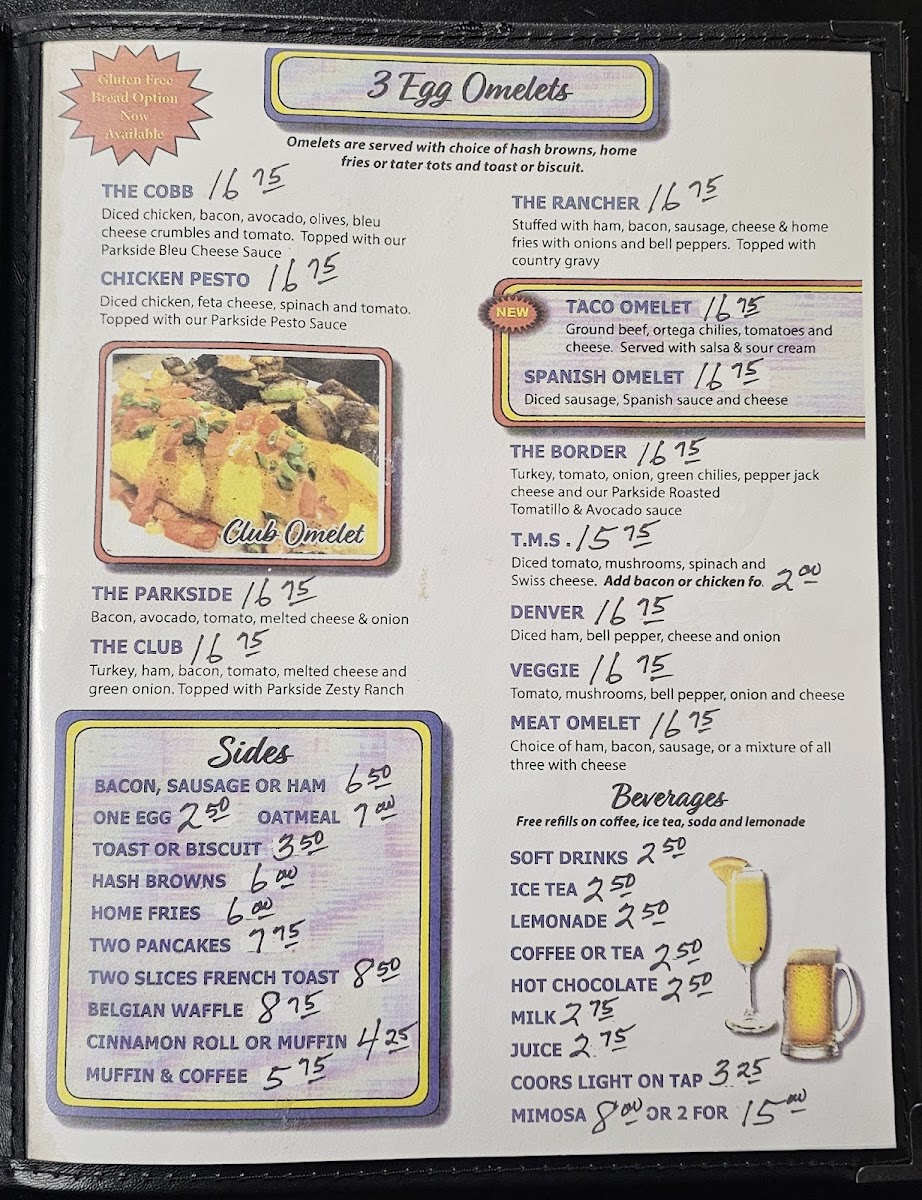 Gluten Free
Bread Option
Now
Available
3 Egg Omelets
Omelets are served with choice of hash browns, home
fries or tater tots and toast or biscuit.
THE COBB 16 75
Diced chicken, bacon, avocado, olives, bleu
cheese crumbles and tomato. Topped with our
Parkside Bleu Cheese Sauce
CHICKEN PESTO 16 75
Diced chicken, feta cheese, spinach and tomato.
Topped with our Parkside Pesto Sauce
Club Omelet
THE PARKSIDE 16 75
Bacon, avocado, tomato, melted cheese & onion
THE CLUB 16 75
Turkey, ham, bacon, tomato, melted cheese and
green onion. Topped with Parkside Zesty Ranch
Sides
BACON, SAUSAGE OR HAM 6 50
ONE EGG 2 50 OATMEAL 7 00
TOAST OR BISCUIT 3 50
HASH BROWNS 6 00
HOME FRIES 6 00
TWO PANCAKES 7 75
TWO SLICES FRENCH TOAST 8 50
BELGIAN WAFFLE 8 75
CINNAMON ROLL OR MUFFIN 4 25
MUFFIN & COFFEE 5 75
THE RANCHER 16 75
Stuffed with ham, bacon, sausage, cheese & home
fries with onions and bell peppers. Topped with
country gravy
NEW
TACO OMELET 16 75
Ground beef, ortega chilies, tomatoes and
cheese. Served with salsa & sour cream
SPANISH OMELET 16 75
Diced sausage, Spanish sauce and cheese
THE BORDER 16 75
Turkey, tomato, onion, green chilies, pepper jack
cheese and our Parkside Roasted
Tomatillo & Avocado sauce
T.M.S . 15 75
Diced tomato, mushrooms, spinach and
Swiss cheese. Add bacon or chicken fo. 2 00
DENVER 16 75
Diced ham, bell pepper, cheese and onion
VEGGIE 16 75
Tomato, mushrooms, bell pepper, onion and cheese
MEAT OMELET 16 75
Choice of ham, bacon, sausage, or a mixture of all
three with cheese
Beverages
Free refills on coffee, ice tea, soda and lemonade
SOFT DRINKS 2 50
ICE TEA 2 50
LEMONADE 2 50
COFFEE OR TEA 2 50
HOT CHOCOLATE 2 50
MILK 2 75
JUICE 2 75
COORS LIGHT ON TAP 3 25
MIMOSA 8 00 OR 2 FOR 15 00